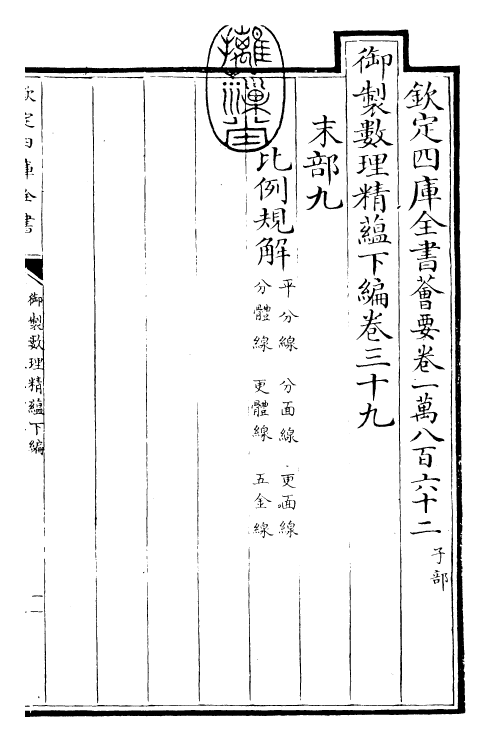 欽定四庫全書薈要卷一萬八百六十二 子部
御製數理精藴下編卷三十九
末部九
比例規解
平分線 分面線 更面線
分體線 更體線 五金線
摛藻堂
欽定四庫全書
御製數理精藴下編